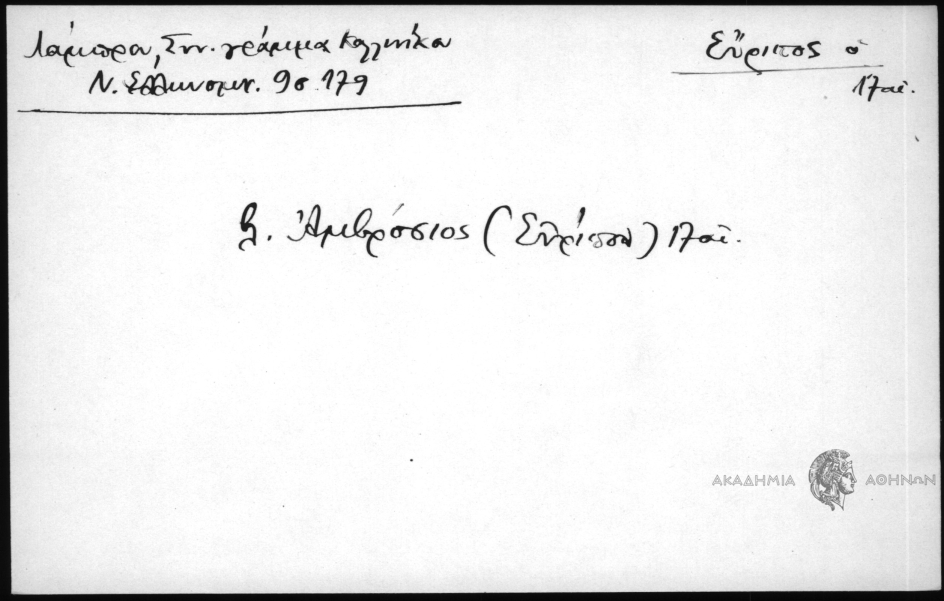 Λάμπρου, Συν. γράμμα Καλλινίκου
Ν. Ἑλληνομν. 9 σ. 179
Εὔριπος ὁ
17 αἰ.
β. Ἀμβρόσιος (Εὐρίπου) 17 αἰ.
ΑΚΑΔΗΜΙΑ ΑΘΗΝΩΝ